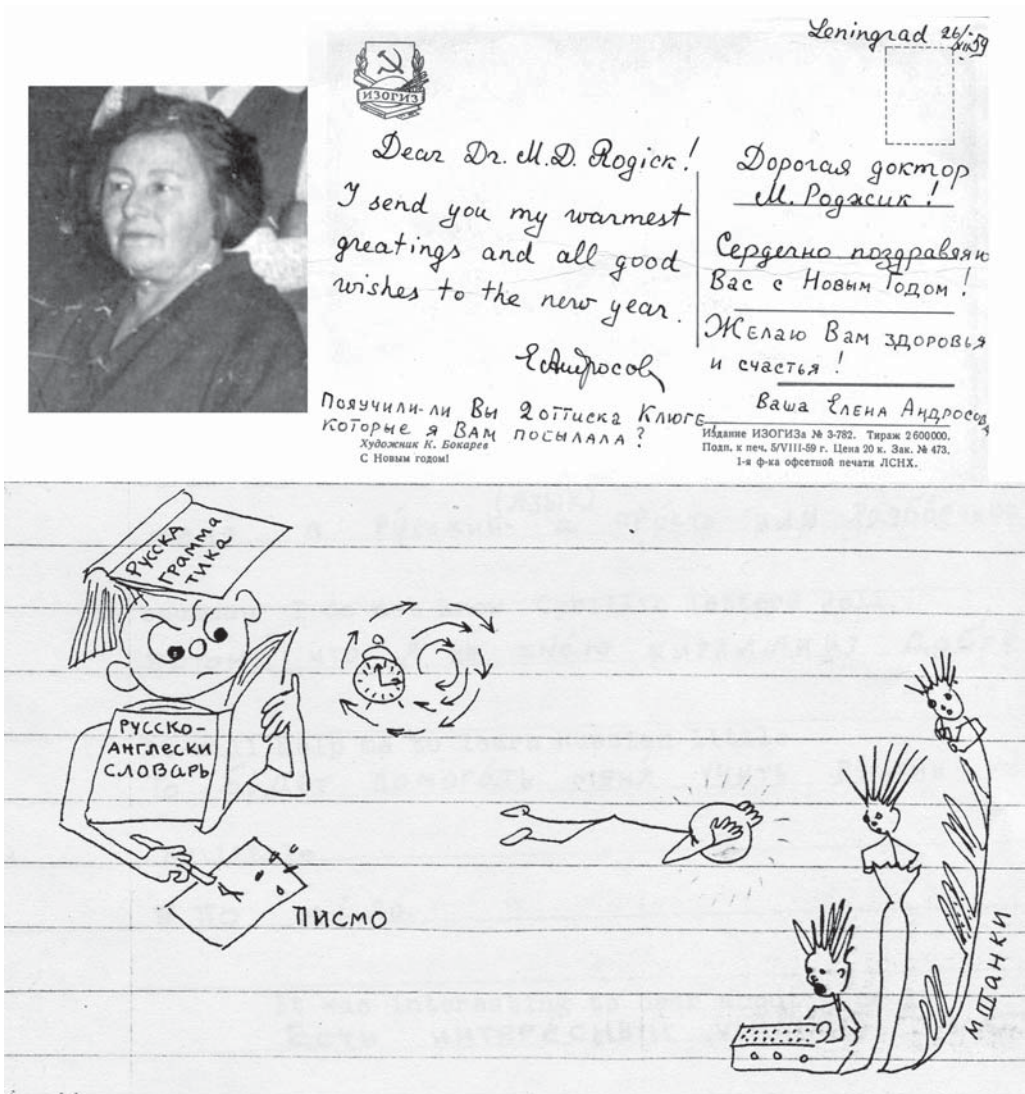 Leningrad 26/XII-59
ИЗОГИЗ
Dear Dr. M.D. Rogick!
I send you my warmest
greatings and all good
wishes to the new year.
ЕАндросова
Получили-ли Вы 2 оттиска Клюге,
которые я Вам посылала?
Художник К. Бокарев
С Новым годом!
Дорогая доктор
М. Роджсик!
Сердечно поздравляю
Вас с Новым Годом!
Желаю Вам здоровья
и счастья!
Ваша Елена Андросова
Издание ИЗОГИЗа № 3-782. Тираж 2600000.
Подп. к печ. 5/VIII-59 г. Цена 20 к. Зак. № 473.
1-я ф-ка офсетной печати ЛСНХ.
РУССКА
ГРАММА
ТИКА
РУССКО-
АНГЛЕСКИ
СЛОВАРЬ
ПИСМО
МШАНКИ